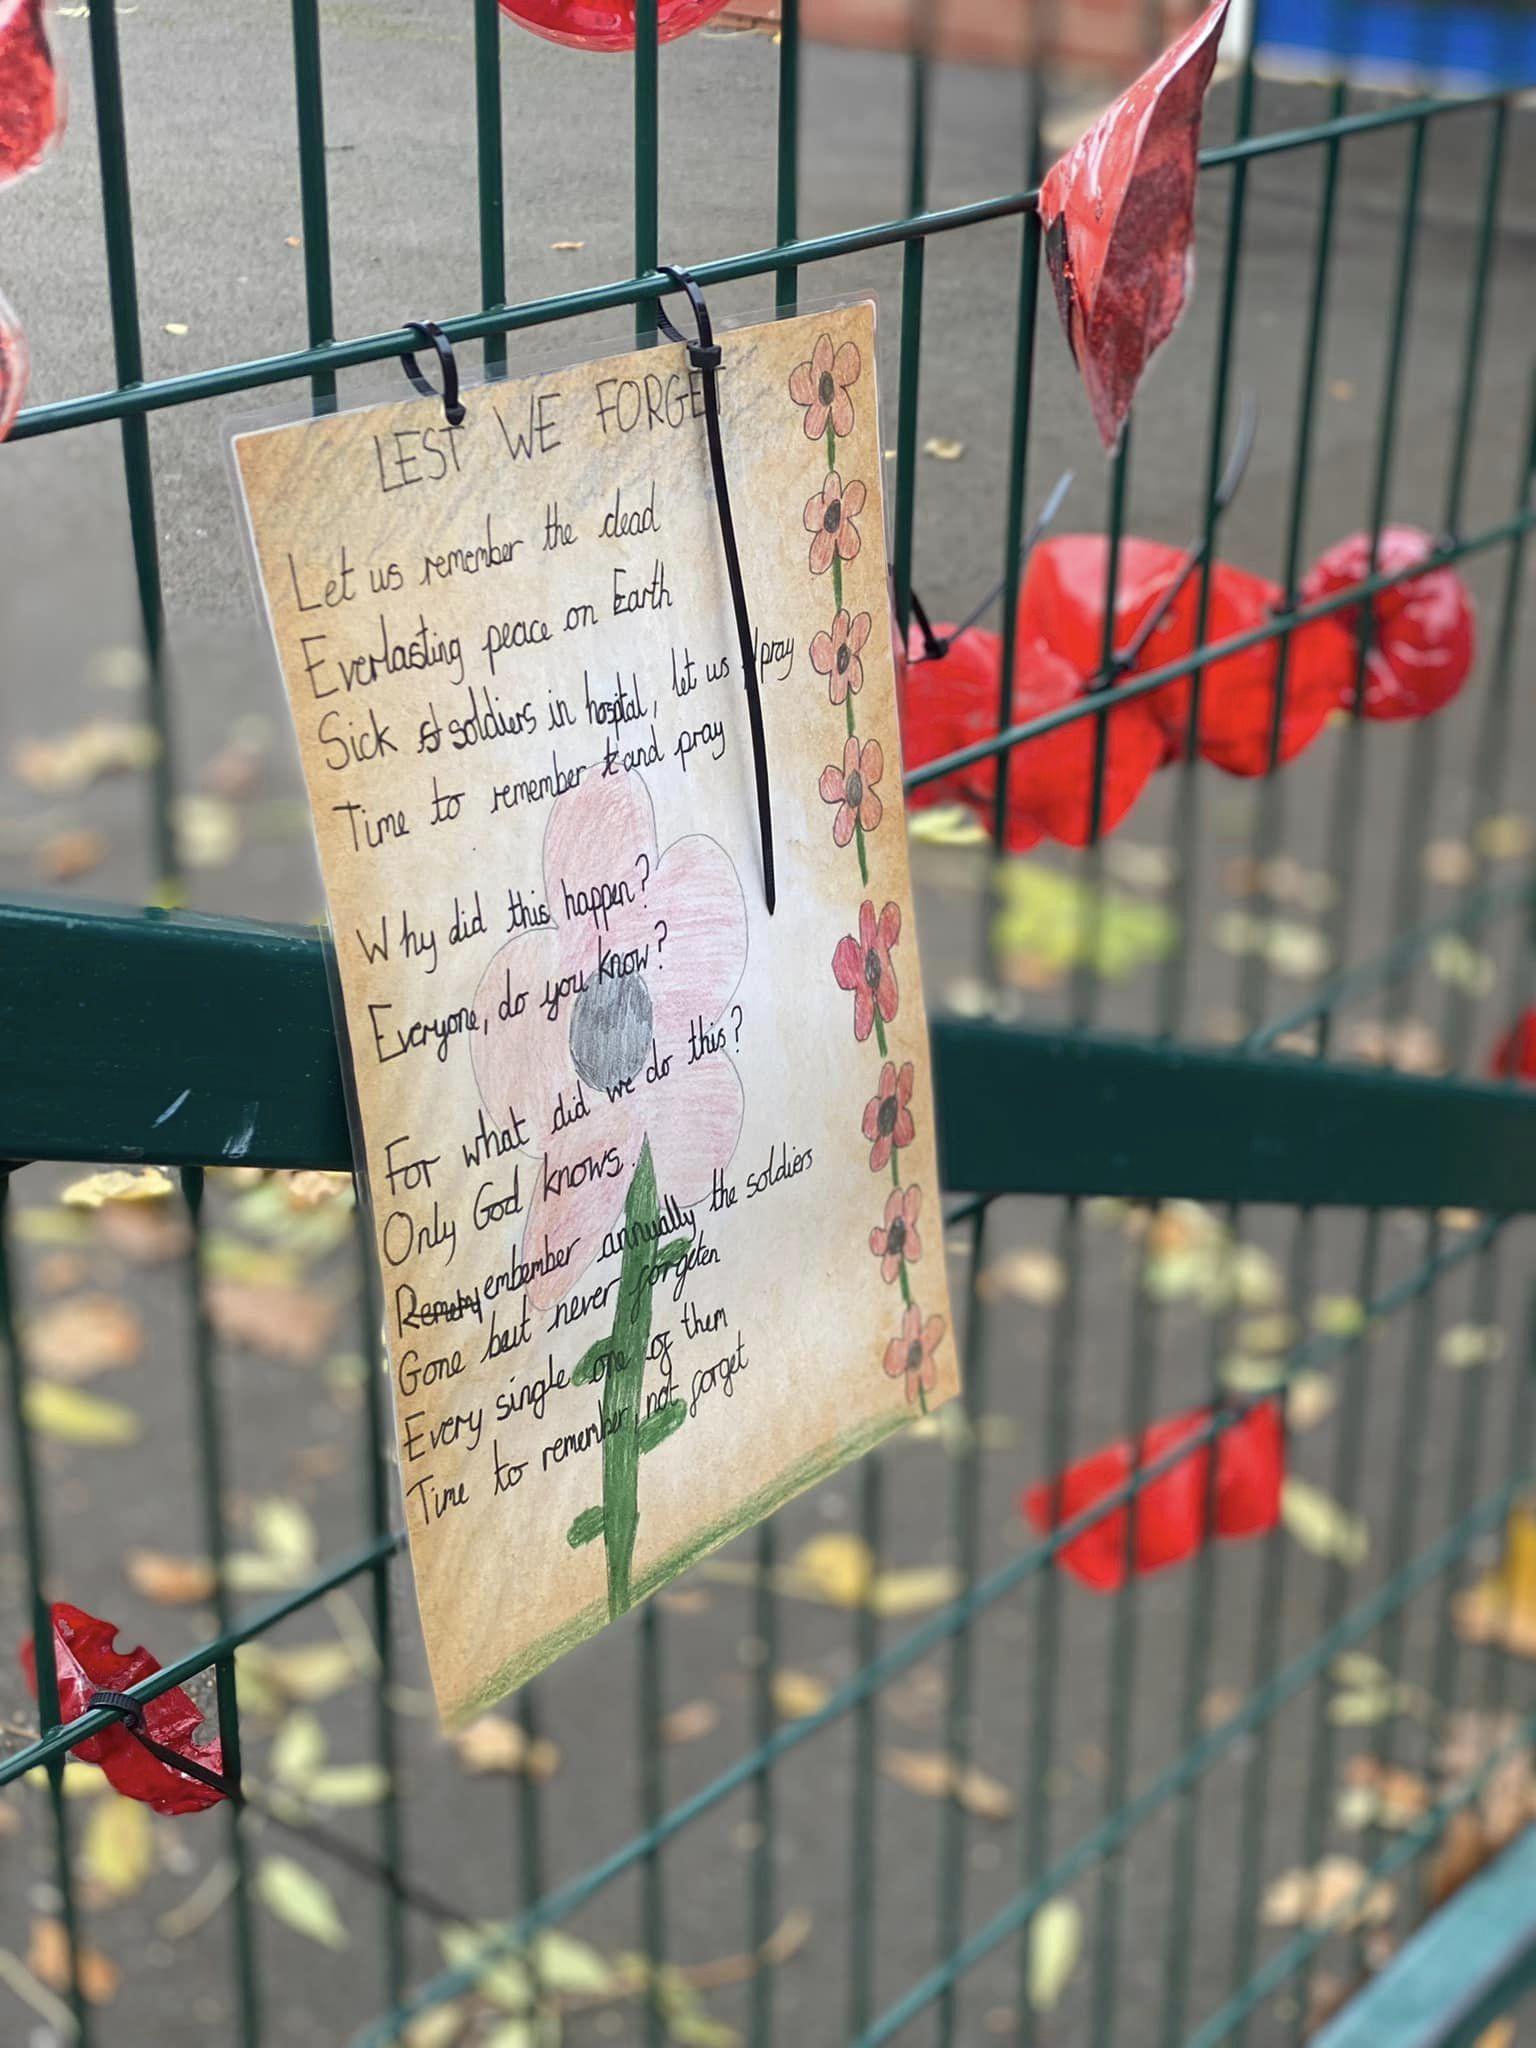 LEST WE FORGET
Let us remember the dead
Everlasting peace on Earth
Sick soldiers in hospital, let us pray
Time to remember and pray
Why did this happen?
Everyone, do you know?
For what did we do this?
Only God knows.
Remembember annually the soldiers
Gone but never forgeten
Every single one of them
Time to remember, not forget